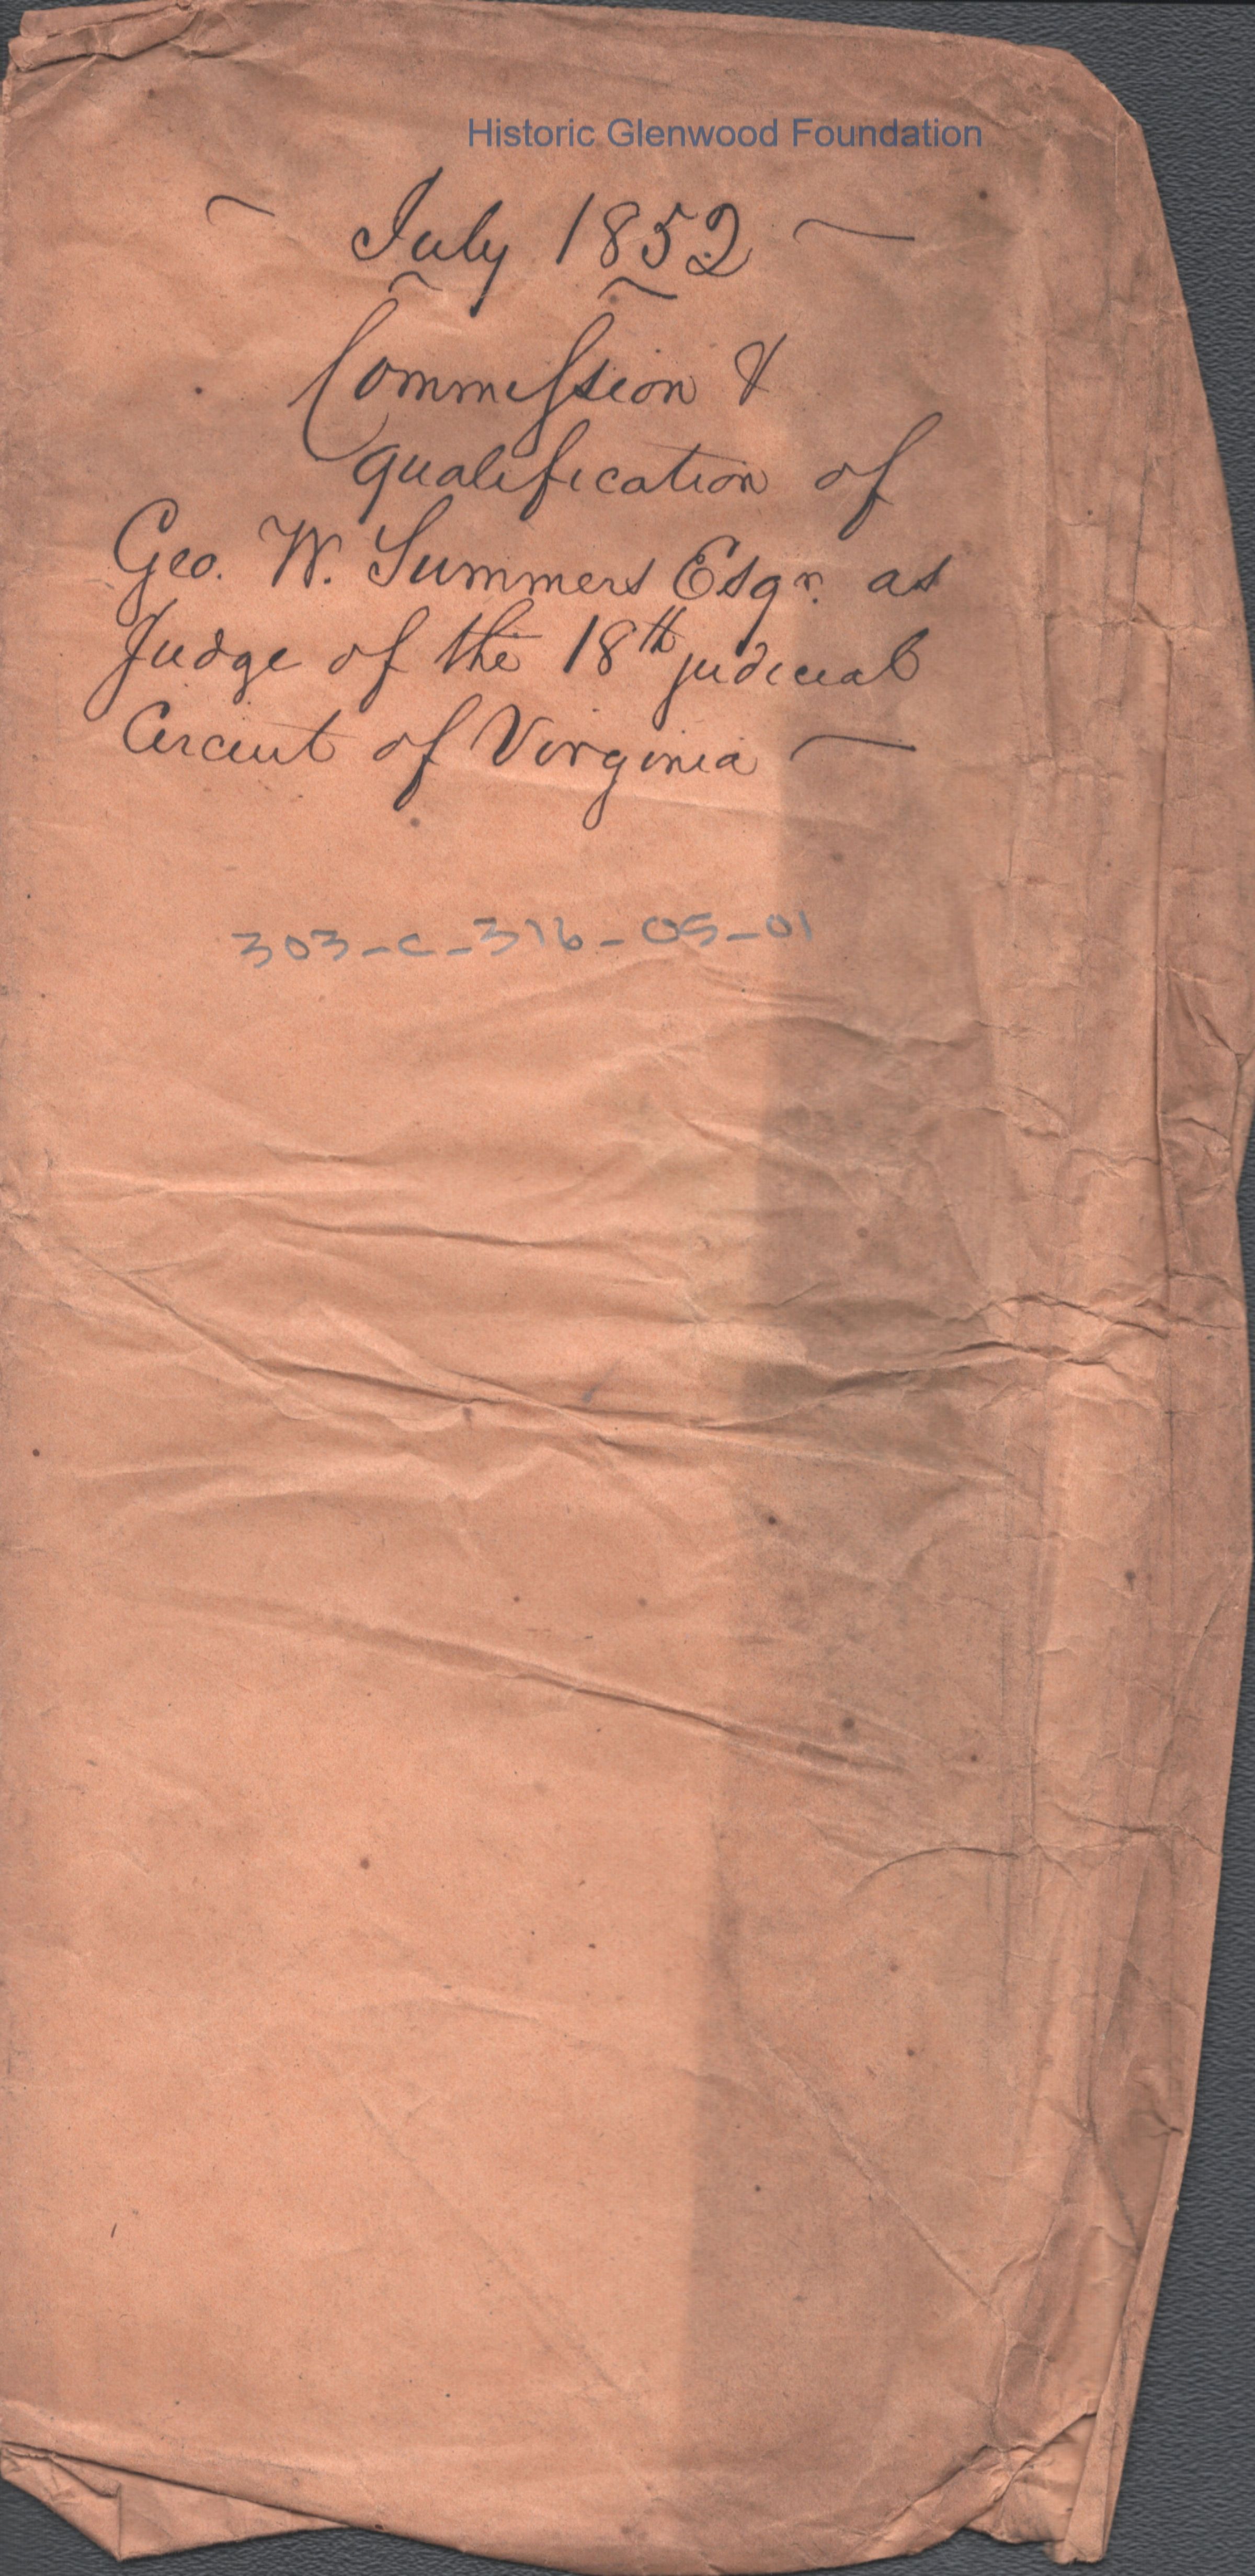 Historic Glenwood Foundation
~ July 1852 ~
Commission &
qualification of
Geo. W. Summers Esqr. as
Judge of the 18th judicial
Circuit of Virginia —
303-C-316-05-01